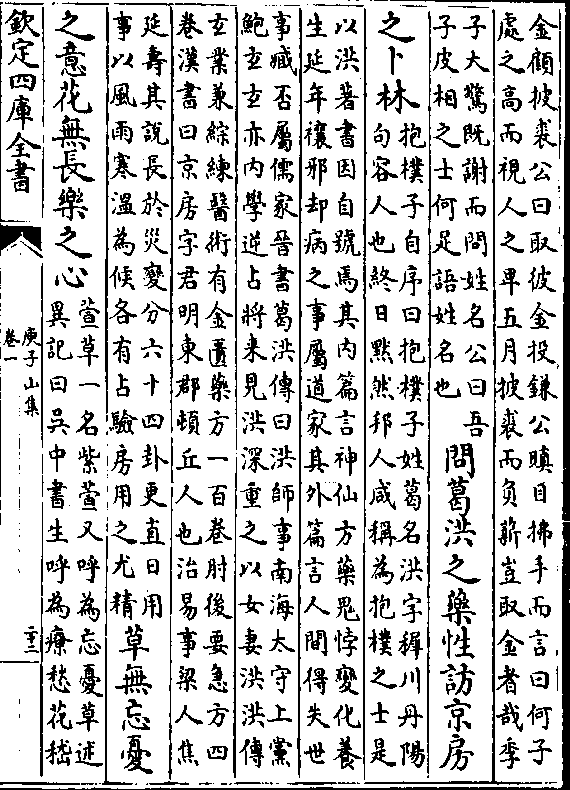 金顧披裘公曰取彼金投鎌公瞋目拂手而言曰何子
處之高而視人之卑五月披裘而負薪豈取金者哉季
子大驚既謝而問姓名公曰吾
子皮相之士何足語姓名也
問葛洪之藥性訪京房
之卜林
抱樸子自序曰抱樸子姓葛名洪字稺川丹陽
句容人也終日黙然邦人咸稱為抱樸之士是
以洪著書因自號焉其内篇言神仙方藥鬼恠變化養
生延年禳邪却病之事屬道家其外篇言人間得失世
事臧否屬儒家晉書葛洪傳曰洪師事南海太守上黨
鮑玄玄亦内學逆占將来見洪深重之以女妻洪洪傳
玄業兼綜練醫術有金匱藥方一百卷肘後要急方四
卷漢書曰京房字君明東郡頓丘人也治易事梁人焦
延壽其說長於災變分六十四卦更直日用
事以風雨寒溫為候各有占驗房用之尤精
草無忘憂
之意花無長樂之心
萱草一名紫萱又呼為忘憂草述
異記曰吳中書生呼為療愁花嵇
欽定四庫全書
庾子山集
卷一